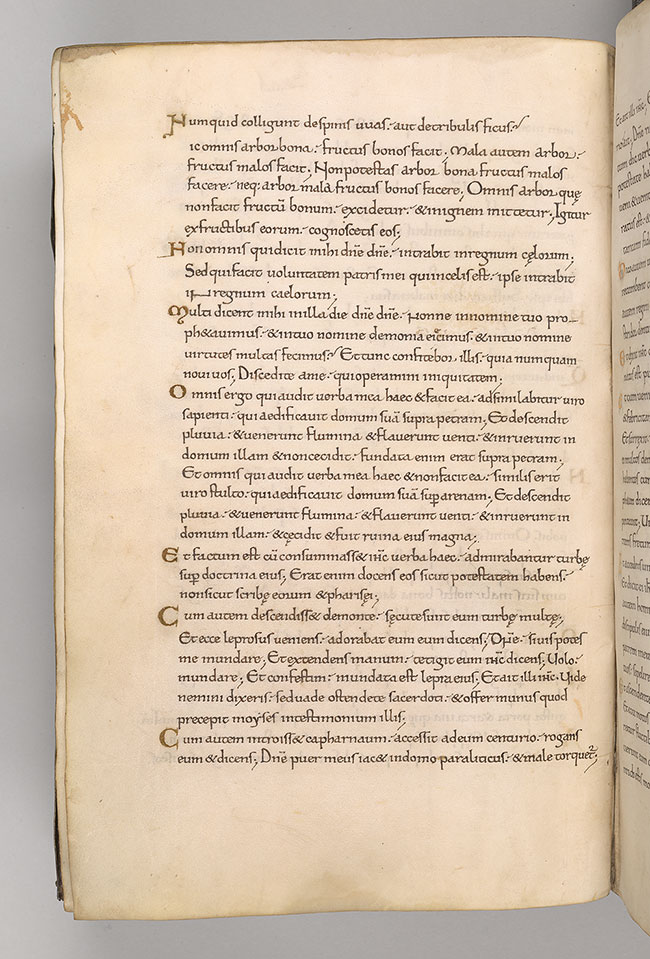 Numquid colligunt de spinis uuas. aut de tribulis ficus.
ic omnis arbor bona. fructus bonos facit; Mala autem arbor.
fructus malos facit; Non potestas arbor bona fructus malos
facere. neq; arbor mala fructus bonos facere; Omnis arbor quę
non facit fructū bonum. excidetur. & in ignem mittetur; Igitur
ex fructibus eorum. cognoscetis eos;
Non omnis qui dicit mihi dn̄e dn̄e. intrabit in regnum cęlorum;
Sed qui facit uoluntatem patris mei qui in celis est. ipse intrabit
in regnum caelorum;
Multi dicent mihi in illa die dn̄e dn̄e. Nonne in nomine tuo pro-
ph&auimus. & in tuo nomine demonia eicimus. & in tuo nomine
uirtutes multas fecimus. Et tunc confitebor illis. quia numquam
noui uos; Discedite a me. qui operamini iniquitatem;
Omnis ergo qui audit uerba mea haec & facit ea. adsimilabitur uiro
sapienti. qui aedificauit domum suā supra petram; Et descendit
pluuia. & uenerunt flumina & flauerunt uenti. & inruerunt in
domum illam & non cecidit. fundata enim erat supra petram;
Et omnis qui audit uerba mea haec & non facit ea. similis erit
uiro stulto. qui aedificauit domum suā sup arenam; Et descendit
pluuia. & uenerunt flumina. & flauerunt uenti. & inruerunt in
domum illam. & cecidit & fuit ruina eius magna;
Et factum est cū consummass& ih̄c uerba haec. admirabantur turbę
sup doctrina eius; Erat enim docens eos sicut potestatem habens.
non sicut scribę eorum & pharisęi;
Cum autem descendiss& de monte. secutę sunt eum turbę multę;
Et ecce leprosus ueniens. adorabat eum eum dicens; Dn̄e. si uis potes
me mundare; Et extendens manum. tetigit eum ih̄c dicens; Uolo.
mundare; Et confestim. mundata est lepra eius; Et ait illi ih̄c. Uide
nemini dixeris. sed uade ostende te sacerdoti. & offer munus quod
precepit moyses in testimonium illis;
Cum autem introiss& capharnaum. accessit ad eum centurio. rogans
eum & dicens; Dn̄e puer meus iac& in domo paraliticus. & male torquet;